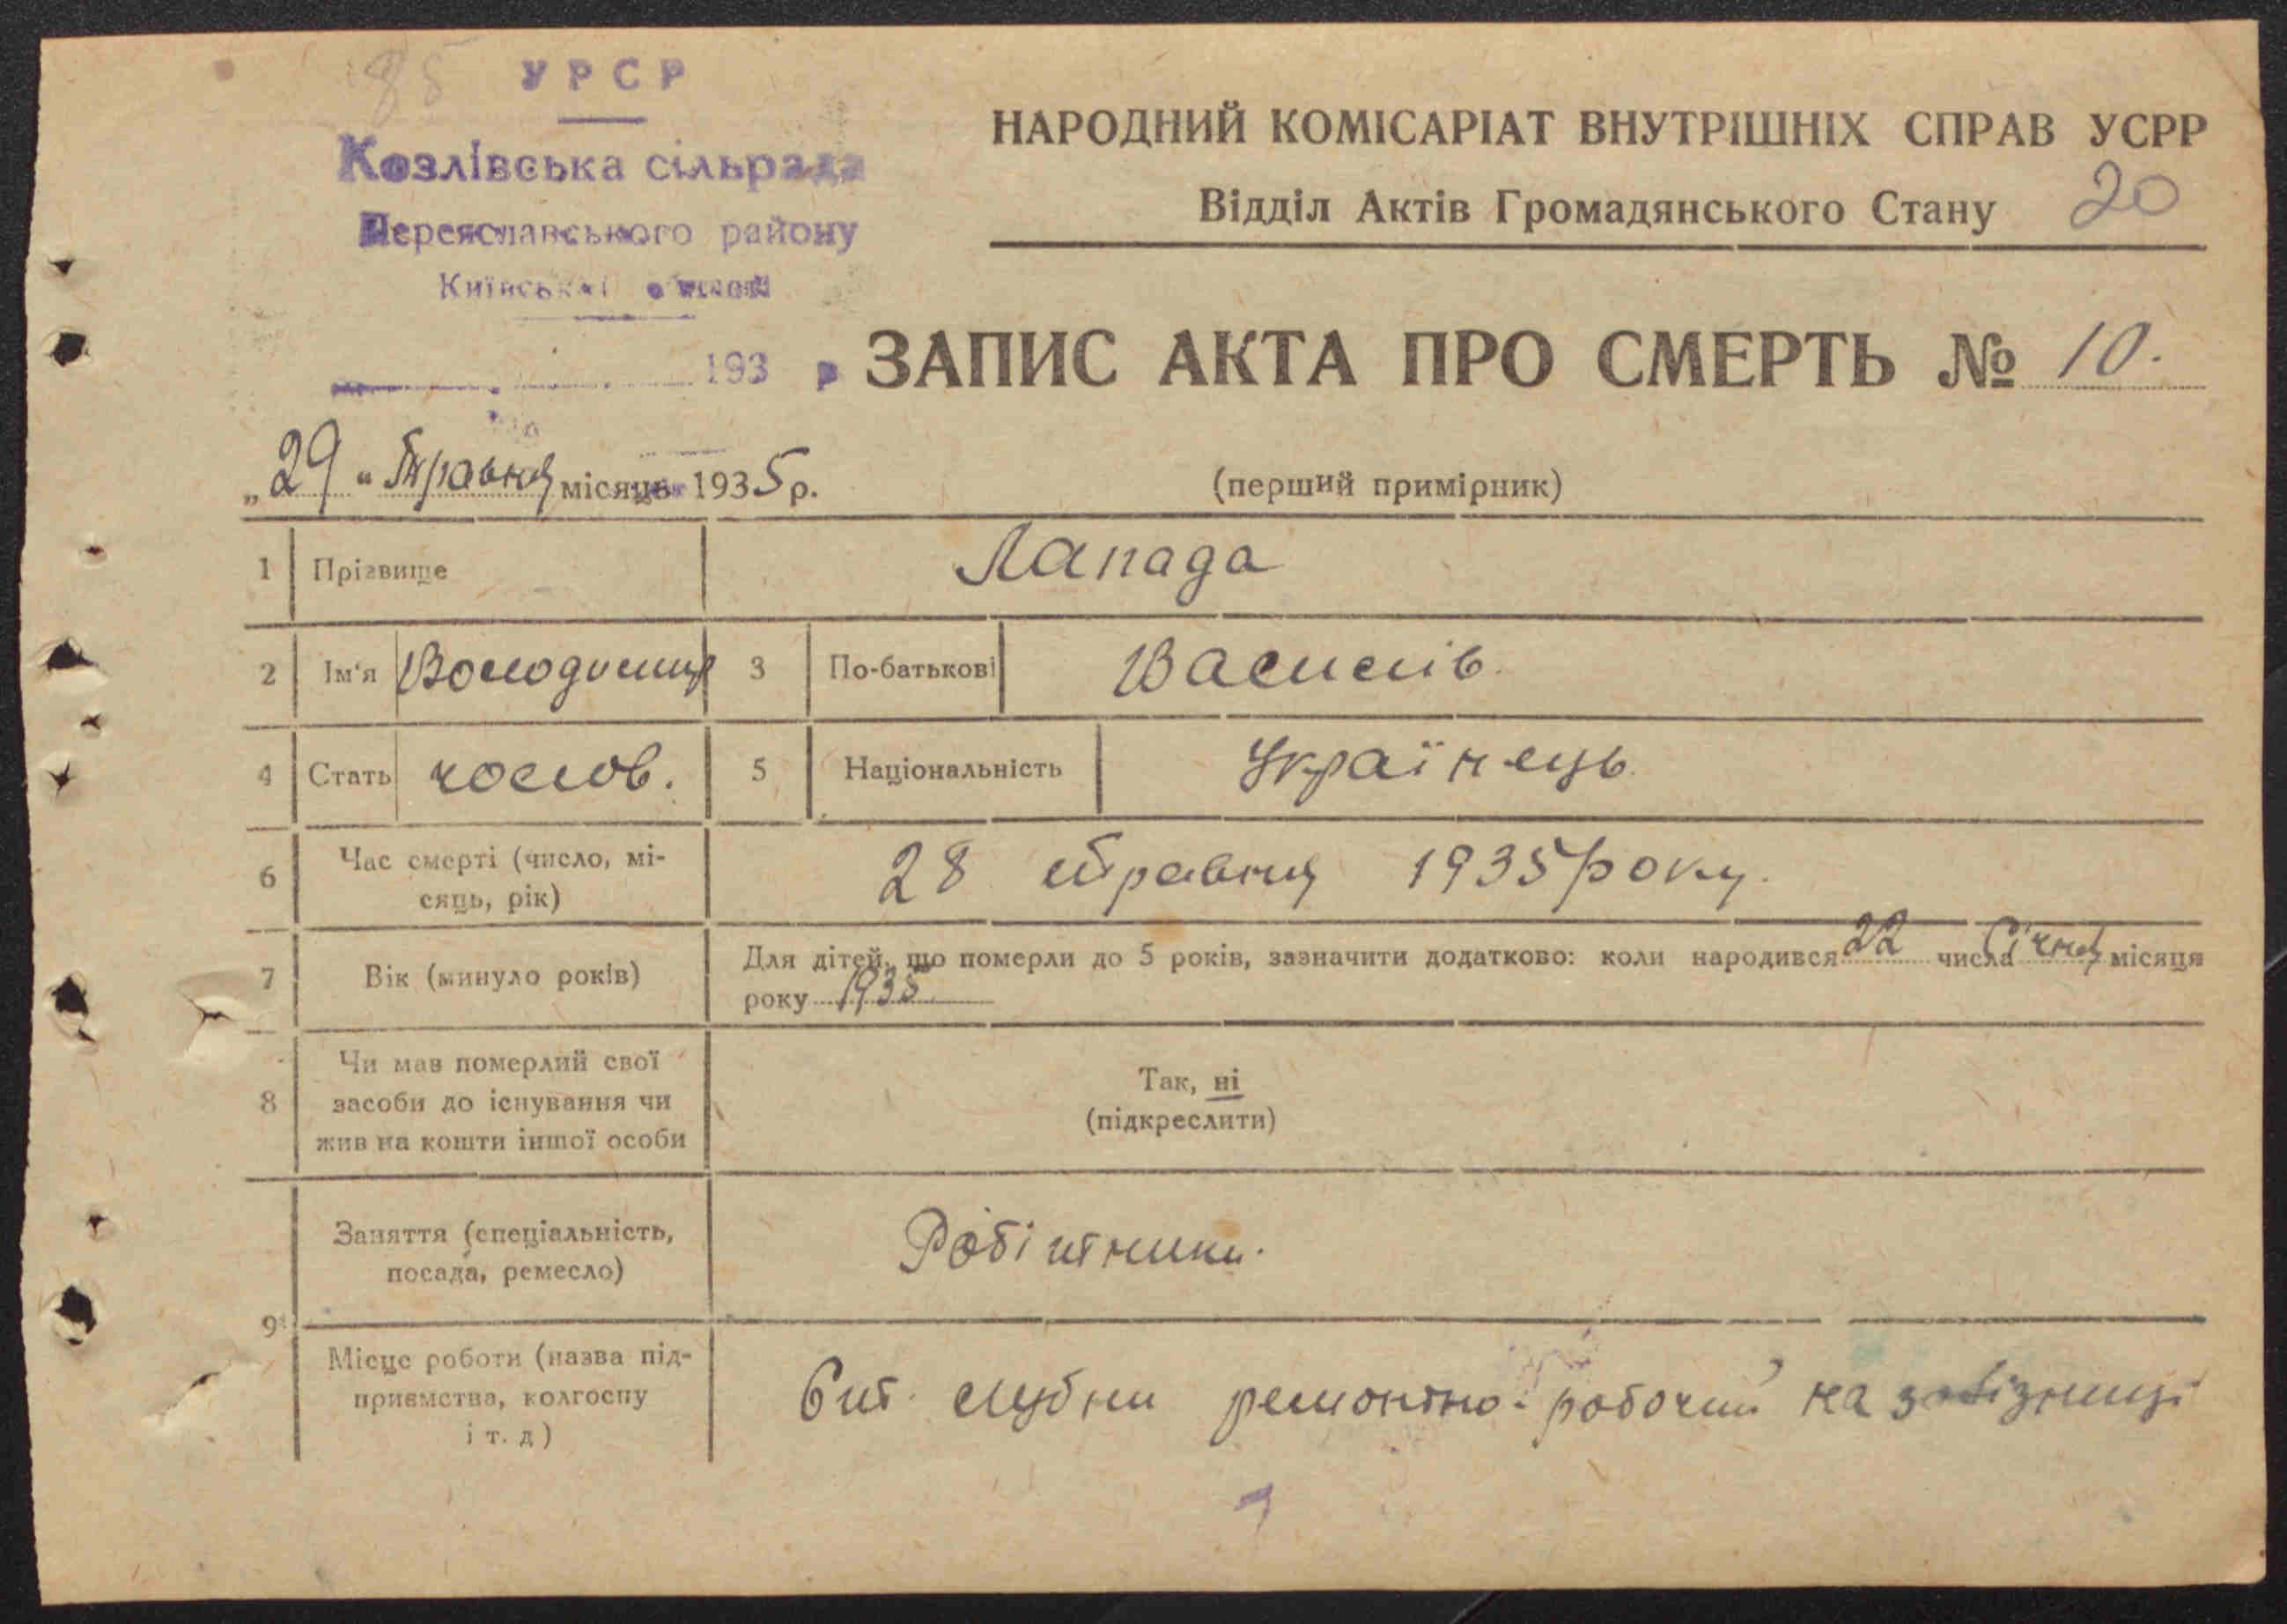 85
УРСР
Козлівська сільрада
Переяславського району
Київської області
193 р
НАРОДНИЙ КОМІСАРІАТ ВНУТРІШНІХ СПРАВ УСРР
Відділ Актів Громадянського Стану 20
ЗАПИС АКТА ПРО СМЕРТЬ № 10.
„29“ Травня місяць 1935 р.
(перший примірник)
1 Прізвище Лапада
2 Ім'я Володимир 3 По-батькові Василів.
4 Стать чолов. 5 Національність Українець.
6 Час смерті (число, мі-
сяць, рік) 28 травня 1935 року.
7 Вік (минуло років) Для дітей, що померли до 5 років, зазначити додатково: коли народився 22 числа Січня місяця
року 1935
8 Чи мав померлий свої
засоби до існування чи
жив на кошти іншої особи
Так, ні
(підкреслити)
9
Заняття (спеціальність,
посада, ремесло) Робітники.
Місце роботи (назва під-
приємства, колгоспу
і т. д)
ремонтно-робочий на залізниці